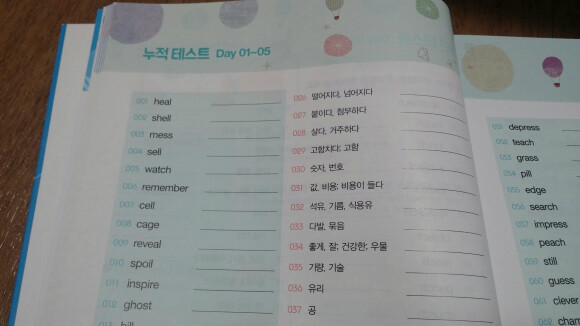 누적 테스트 Day 01~05
001 heal
002 shell
003 mess
004 sell
005 watch
006 remember
007 cell
008 cage
009 reveal
010 spoil
011 inspire
012 ghost
026 떨어지다, 넘어지다
027 붙이다, 첨부하다
028 살다, 거주하다
029 고함치다; 고함
030 숫자, 번호
031 값, 비용; 비용이 들다
032 석유, 기름, 식용유
033 다발, 묶음
034 좋게, 잘; 건강한; 우물
035 기량, 기술
036 유리
037 공
051 depress
052 teach
053 grass
054 pill
055 edge
056 search
057 impress
058 peach
059 still
060 guess
061 clever
062